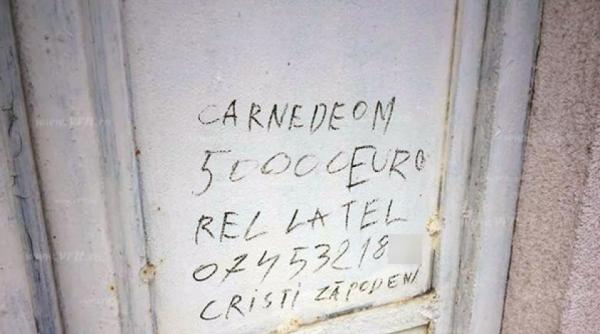 CARNEDEOM
50000EURO
REL LA TEL
07453218
CRISTI ZĂPODENI